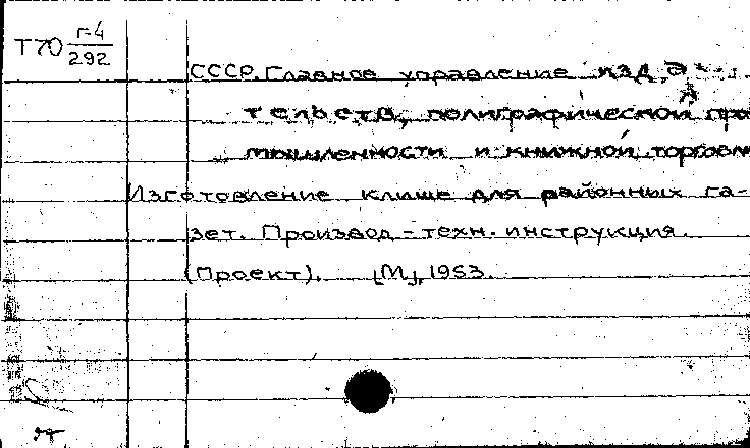 Т70 г-4
292
СССР. Главное управление изда-
тельств, полиграфической про
мышленности и книжной торговл
Изготовление клише для районных га-
зет. Производ-техн. инструкция.
(Проект). [М], 1953.